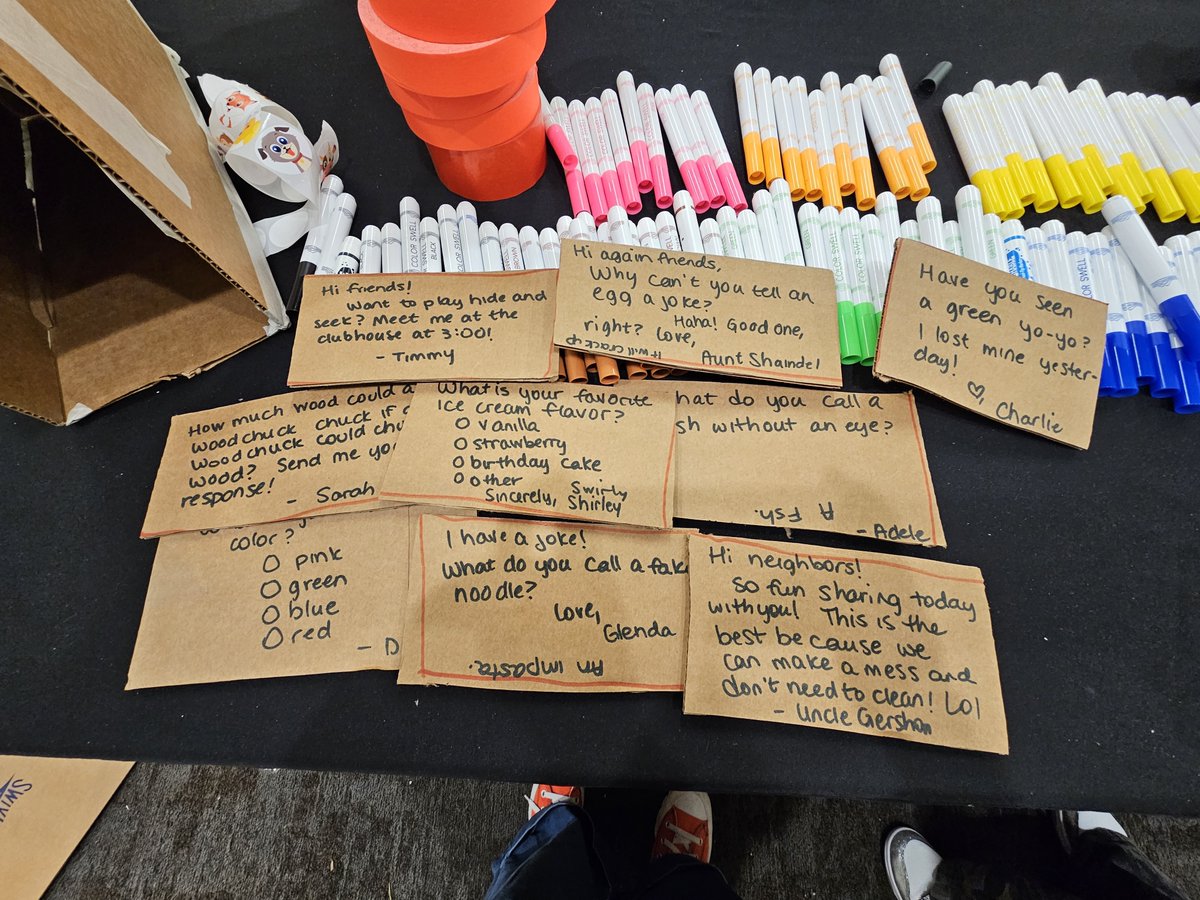 Hi friends!
Want to play hide and
seek? Meet me at the
clubhouse at 3:00!
- Timmy
Hi again friends,
Why can't you tell an
egg a joke?
Haha! Good one,
right? Love,
It will crack up
Aunt Shaindel
Have you seen
a green yo-yo?
I lost mine yester-
day!
♡, Charlie
How much wood could a
woodchuck chuck if
woodchuck could
wood? Send me
response!
- Sarah
What is your favorite
Ice cream flavor?
O vanilla
O strawberry
O birthday cake
O other
Swirly
Sincerely, Shirley
do you call a
without an eye?
A Fsh.
- Adele
color?
O pink
O green
O blue
O red
- D
I have a joke!
What do you call a
noodle?
Love,
Glenda
An impasta.
Hi neighbors!
So fun sharing today
with you! This is the
best because we
can make a mess and
don't need to clean! Lol
- Uncle Gershon
COLOR SWELL
BLACK
COLOR SWELL
BROWN
COLOR SWELL
COLOR SWELL
COLOR SWELL